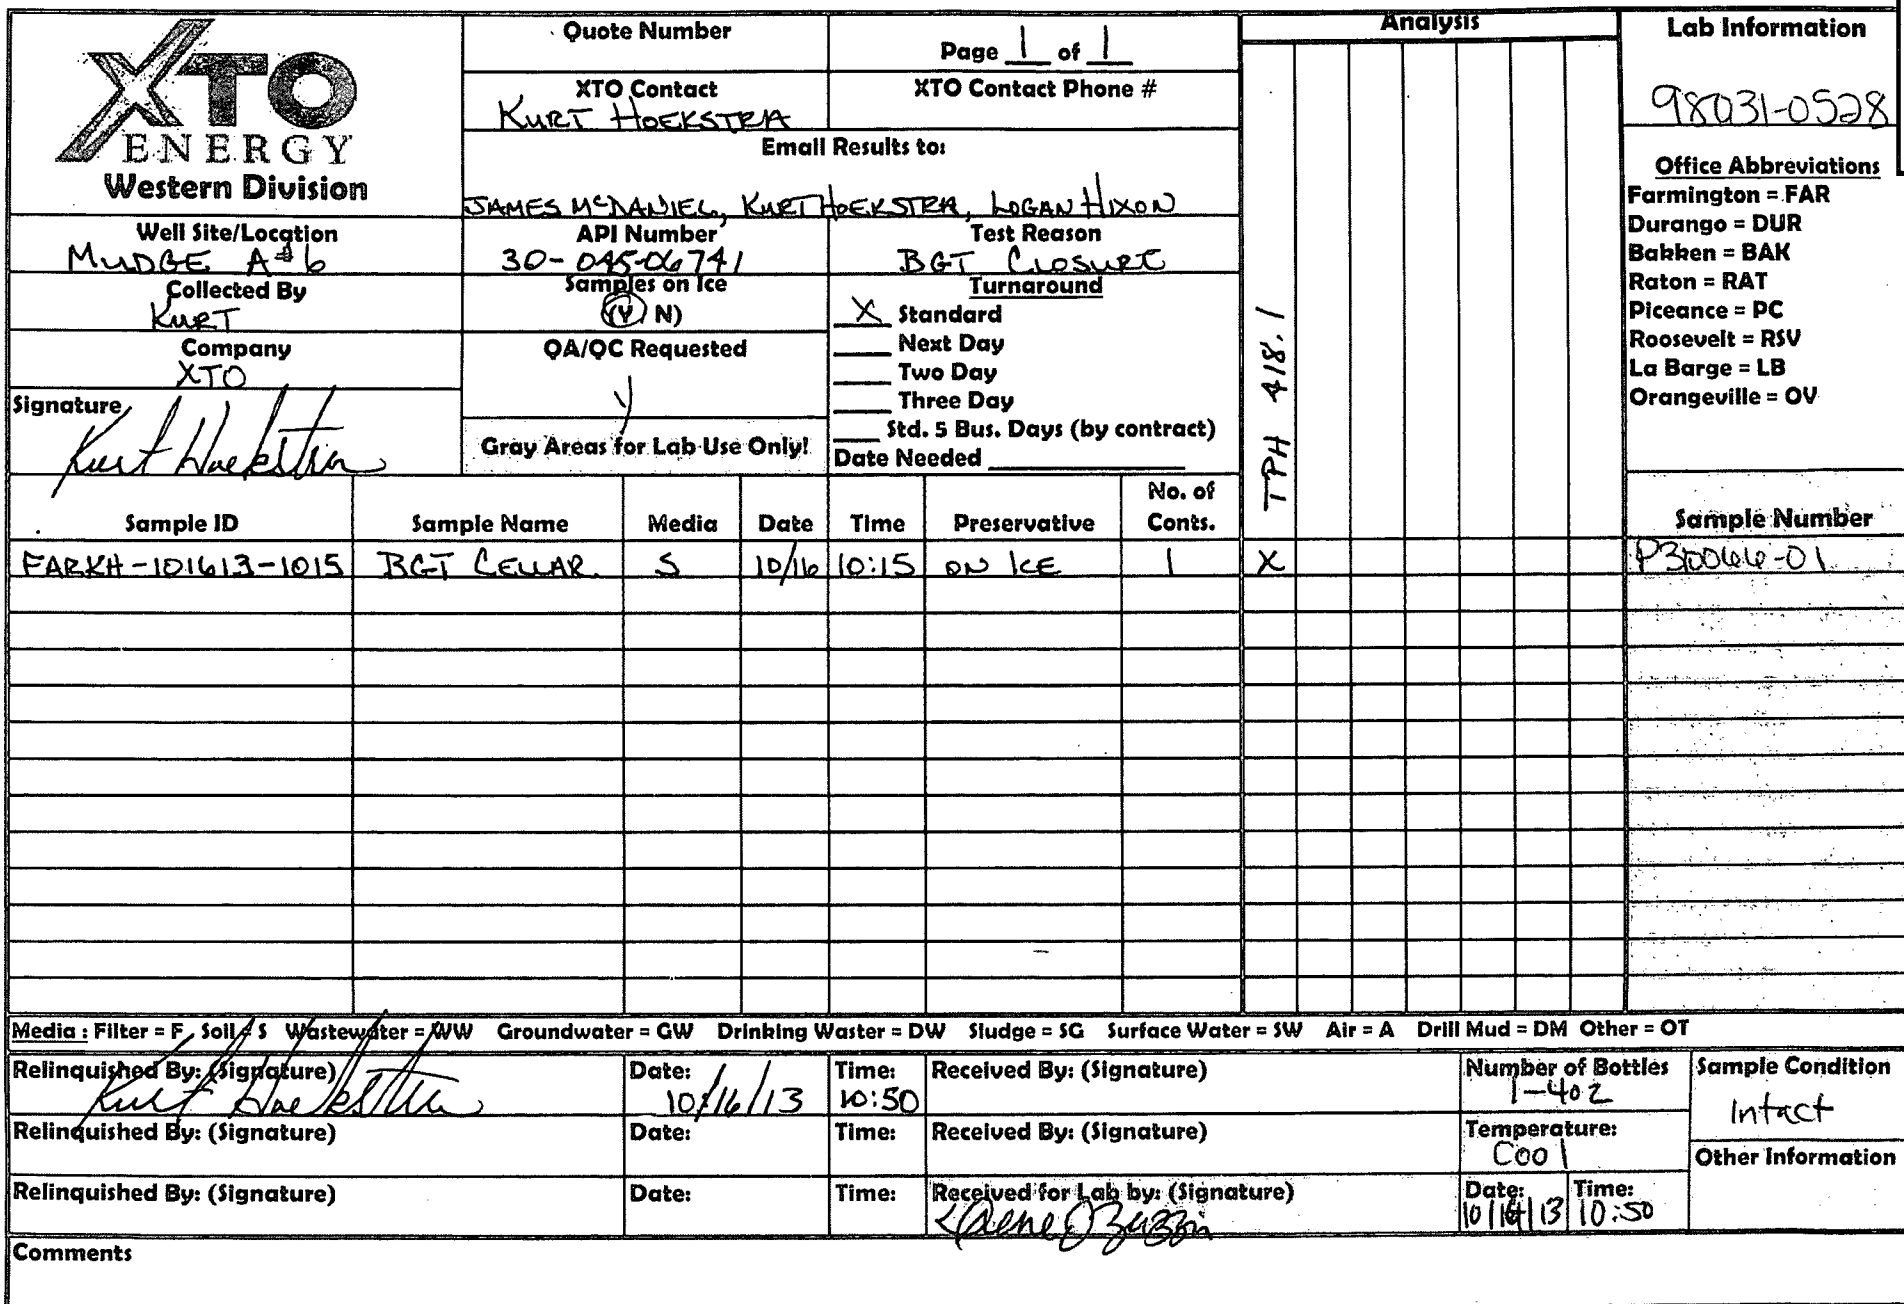 XTO
ENERGY
Western Division
Quote Number
Page 1 of 1
XTO Contact
KURT HOEKSTRA
XTO Contact Phone #
Email Results to:
JAMES McDANIEL, KURT HOEKSTRA, LOGAN HIXON
Well Site/Location
MUDGE A#6
API Number
30-045-06741
Test Reason
BGT CLOSURE
Collected By
KURT
Samples on Ice
(Y/ N)
Turnaround
X Standard
Next Day
Two Day
Three Day
Std. 5 Bus. Days (by contract)
Date Needed
Company
XTO
QA/QC Requested
Y
Signature
Kurt Hoekstra
Gray Areas for Lab Use Only!
Analysis
TPH 418.1
Lab Information
98031-0528
Office Abbreviations
Farmington = FAR
Durango = DUR
Bakken = BAK
Raton = RAT
Piceance = PC
Roosevelt = RSV
La Barge = LB
Orangeville = OV
Sample ID Sample Name Media Date Time Preservative No. of Conts. Sample Number
FARKH-101613-1015 BGT CELLAR S 10/16 10:15 ON ICE 1 X P310066-01
Media : Filter = F Soil = S Wastewater = WW Groundwater = GW Drinking Waster = DW Sludge = SG Surface Water = SW Air = A Drill Mud = DM Other = OT
Relinquished By: (Signature) Date: Time: Received By: (Signature) Number of Bottles Sample Condition
Kurt Hoekstra 10/16/13 10:50 1-4oz Intact
Relinquished By: (Signature) Date: Time: Received By: (Signature) Temperature: Other Information
Cool
Relinquished By: (Signature) Date: Time: Received for Lab by: (Signature) Date: Time:
10/16/13 10:50
Comments